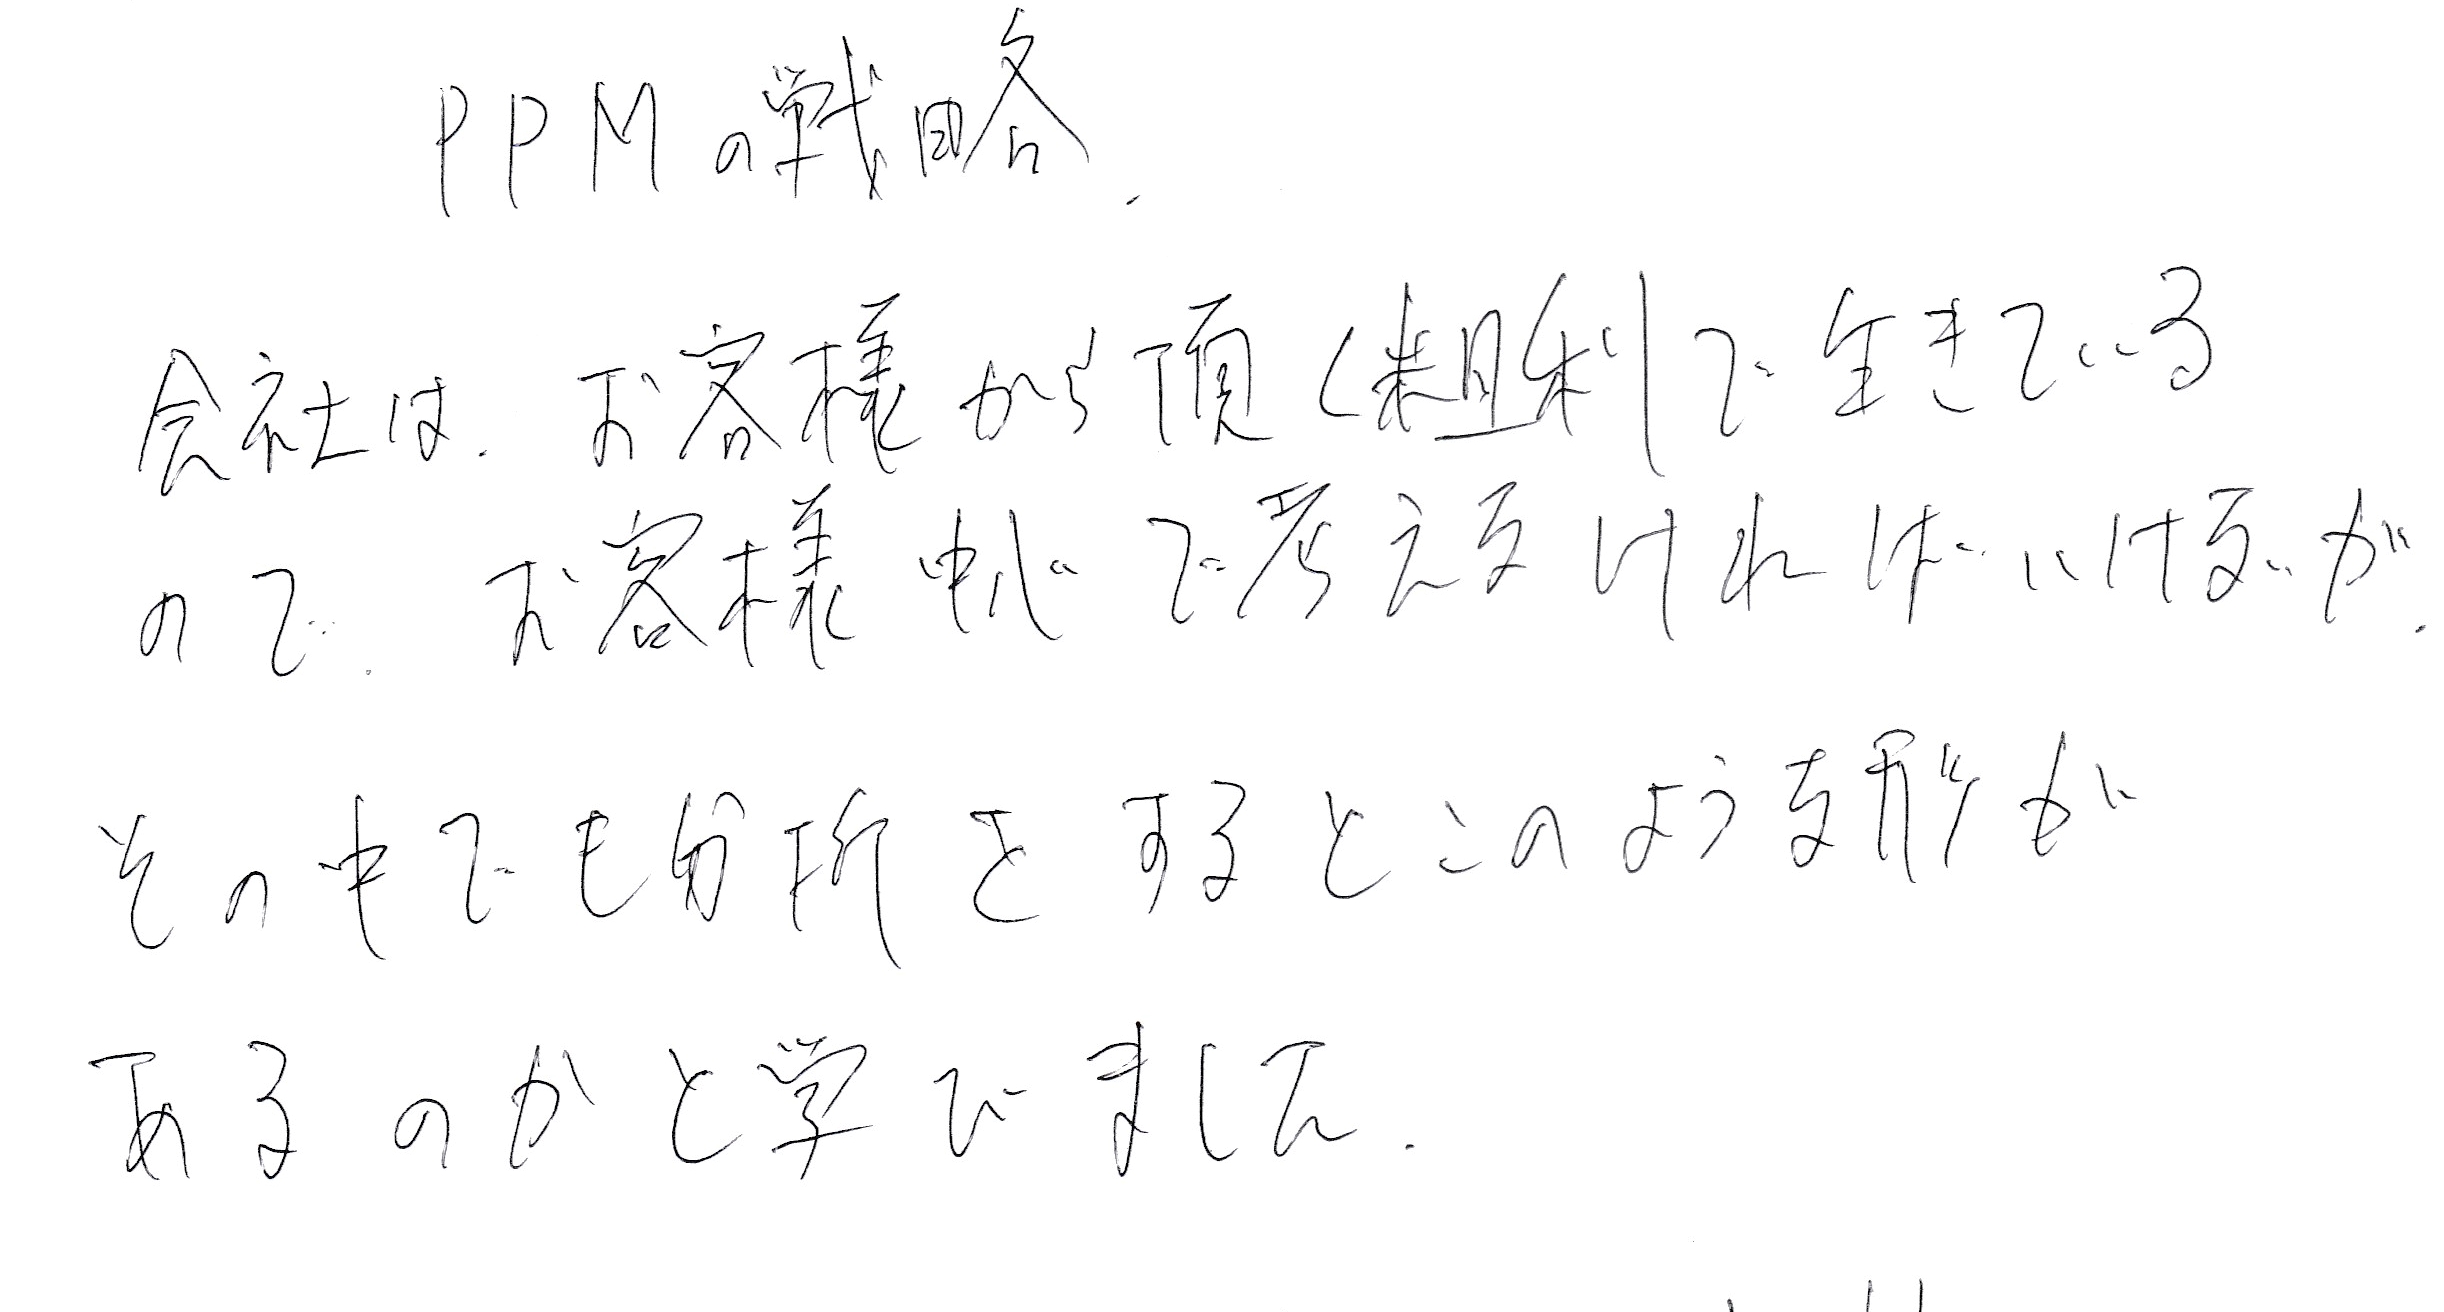 PPMの戦略.
会社は、お客様から頂く粗利で生きている
ので、お客様中心で考えなければいけないが、
その中でも分析をするとこのような形が
あるのかと学びました.